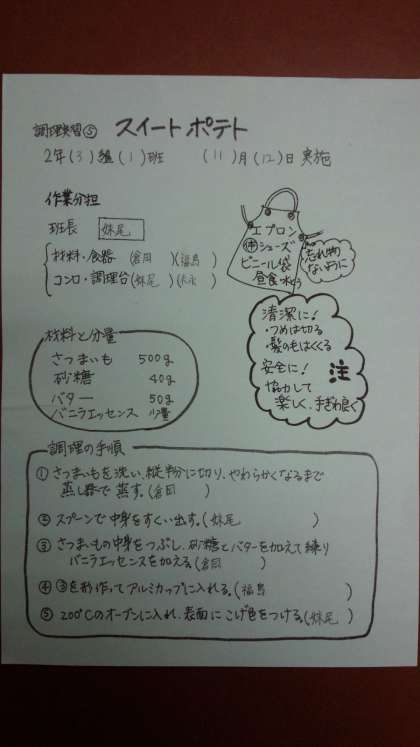 調理実習⑤ スイートポテト
2年(3)組(1)班 (11)月(12)日実施
作業分担
班長 妹尾
材料・食器(倉田)(福島)
コンロ・調理台(妹尾)
エプロン
シューズ
ビニール袋
昼食・水とう
忘れ物
ないように
材料と分量
さつまいも 500g
砂糖 40g
バター 50g
バニラエッセンス 少量
清潔に!
・つめは切る
・髪の毛はくくる
安全に! 注
協力して
楽しく、手ぎわ良く
調理の手順
①さつまいもを洗い、縦半分に切り、やわらかくなるまで
蒸し器で蒸す。(倉田)
②スプーンで中身をすくい出す。(妹尾)
③さつまいもの中身をつぶし、砂糖とバターを加えて練り
バニラエッセンスを加える。(倉田)
④③を形作ってアルミカップに入れる。(福島)
⑤200℃のオーブンに入れ、表面にこげ色をつける。(妹尾)